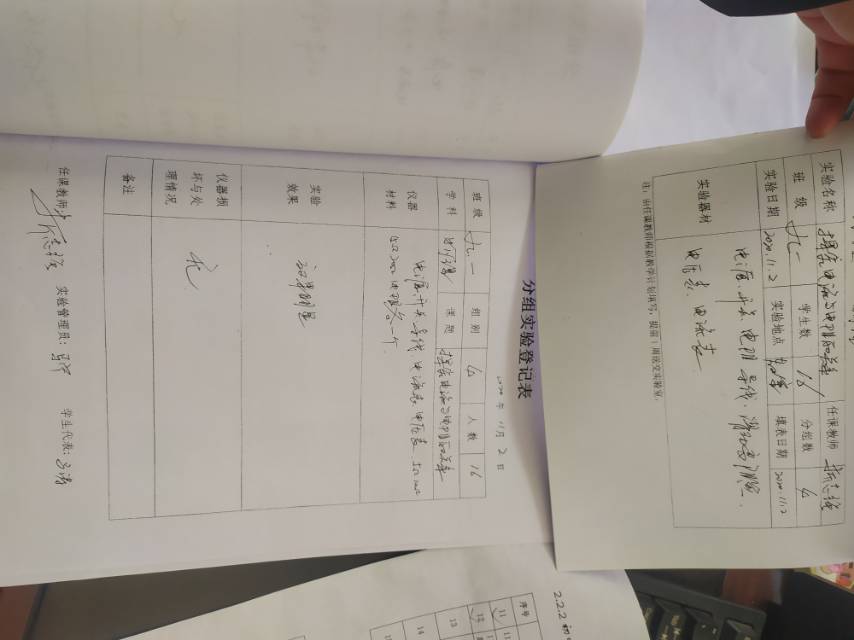 实验名称 探究电流与电阻的关系 任课教师
班 级 九一 学生数 16 分组数 4
实验日期 2020.11.2 实验地点 填表日期 2020.11.2
实验器材 电源、开关、电阻、导线、滑动变阻器、
电压表、电流表
注：由任课教师根据教学计划填写，提前1周送交实验室。
分组实验登记表
2020年 11月 2日
班 级 九一 组 别 4 人 数 16
学 科 物理 课 题 探究电流与电阻的关系
仪器
材料
电源、开关、导线、电流表、电压表、5Ω 10Ω
电阻各一个
实验
效果
效果明显
仪器损
坏与处
理情况
无
备注
任课教师： 实验管理员： 学生代表：
2.2.2
序号
11
12
13
14